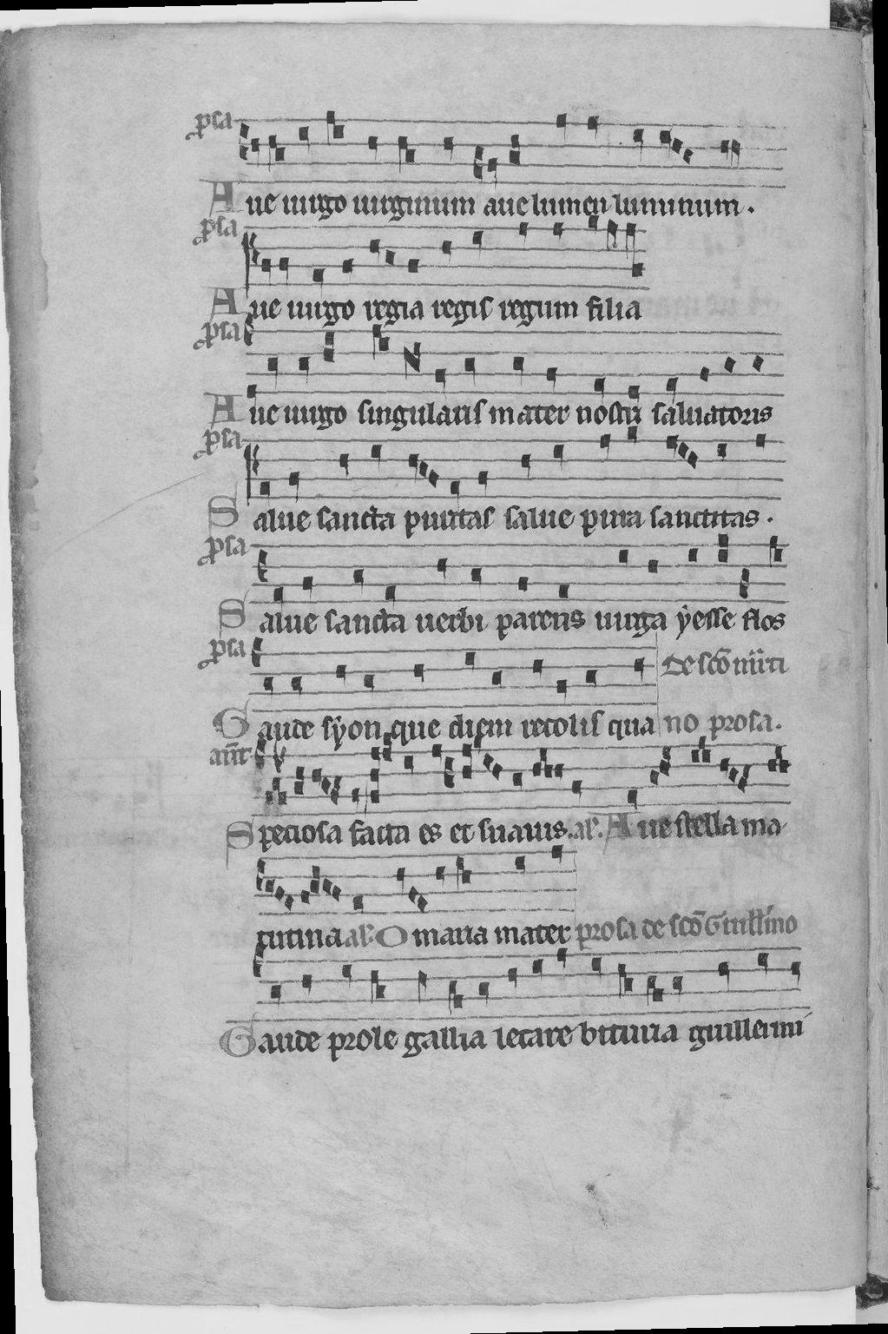 p̱sa
Aue uirgo uirginum aue lumen luminum.
p̱sa
Aue uirgo regia regis regum filia
p̱sa
Aue uirgo singularis mater nostri saluatoris
p̱sa
Salue sancta puritas salue pura sanctitas.
p̱sa
Salue sancta uerbi parens uirga ẏesse flos
p̱sa
De sc̄o
Gaude sẏon que diem recolis qua no prosa.
an̄t
Speciosa facta es et suauis. al'. Aue stella ma
tutina al'. O maria mater prosa de sc̄o Guill'mo
Gaude prole gallia letare bituria guillermi